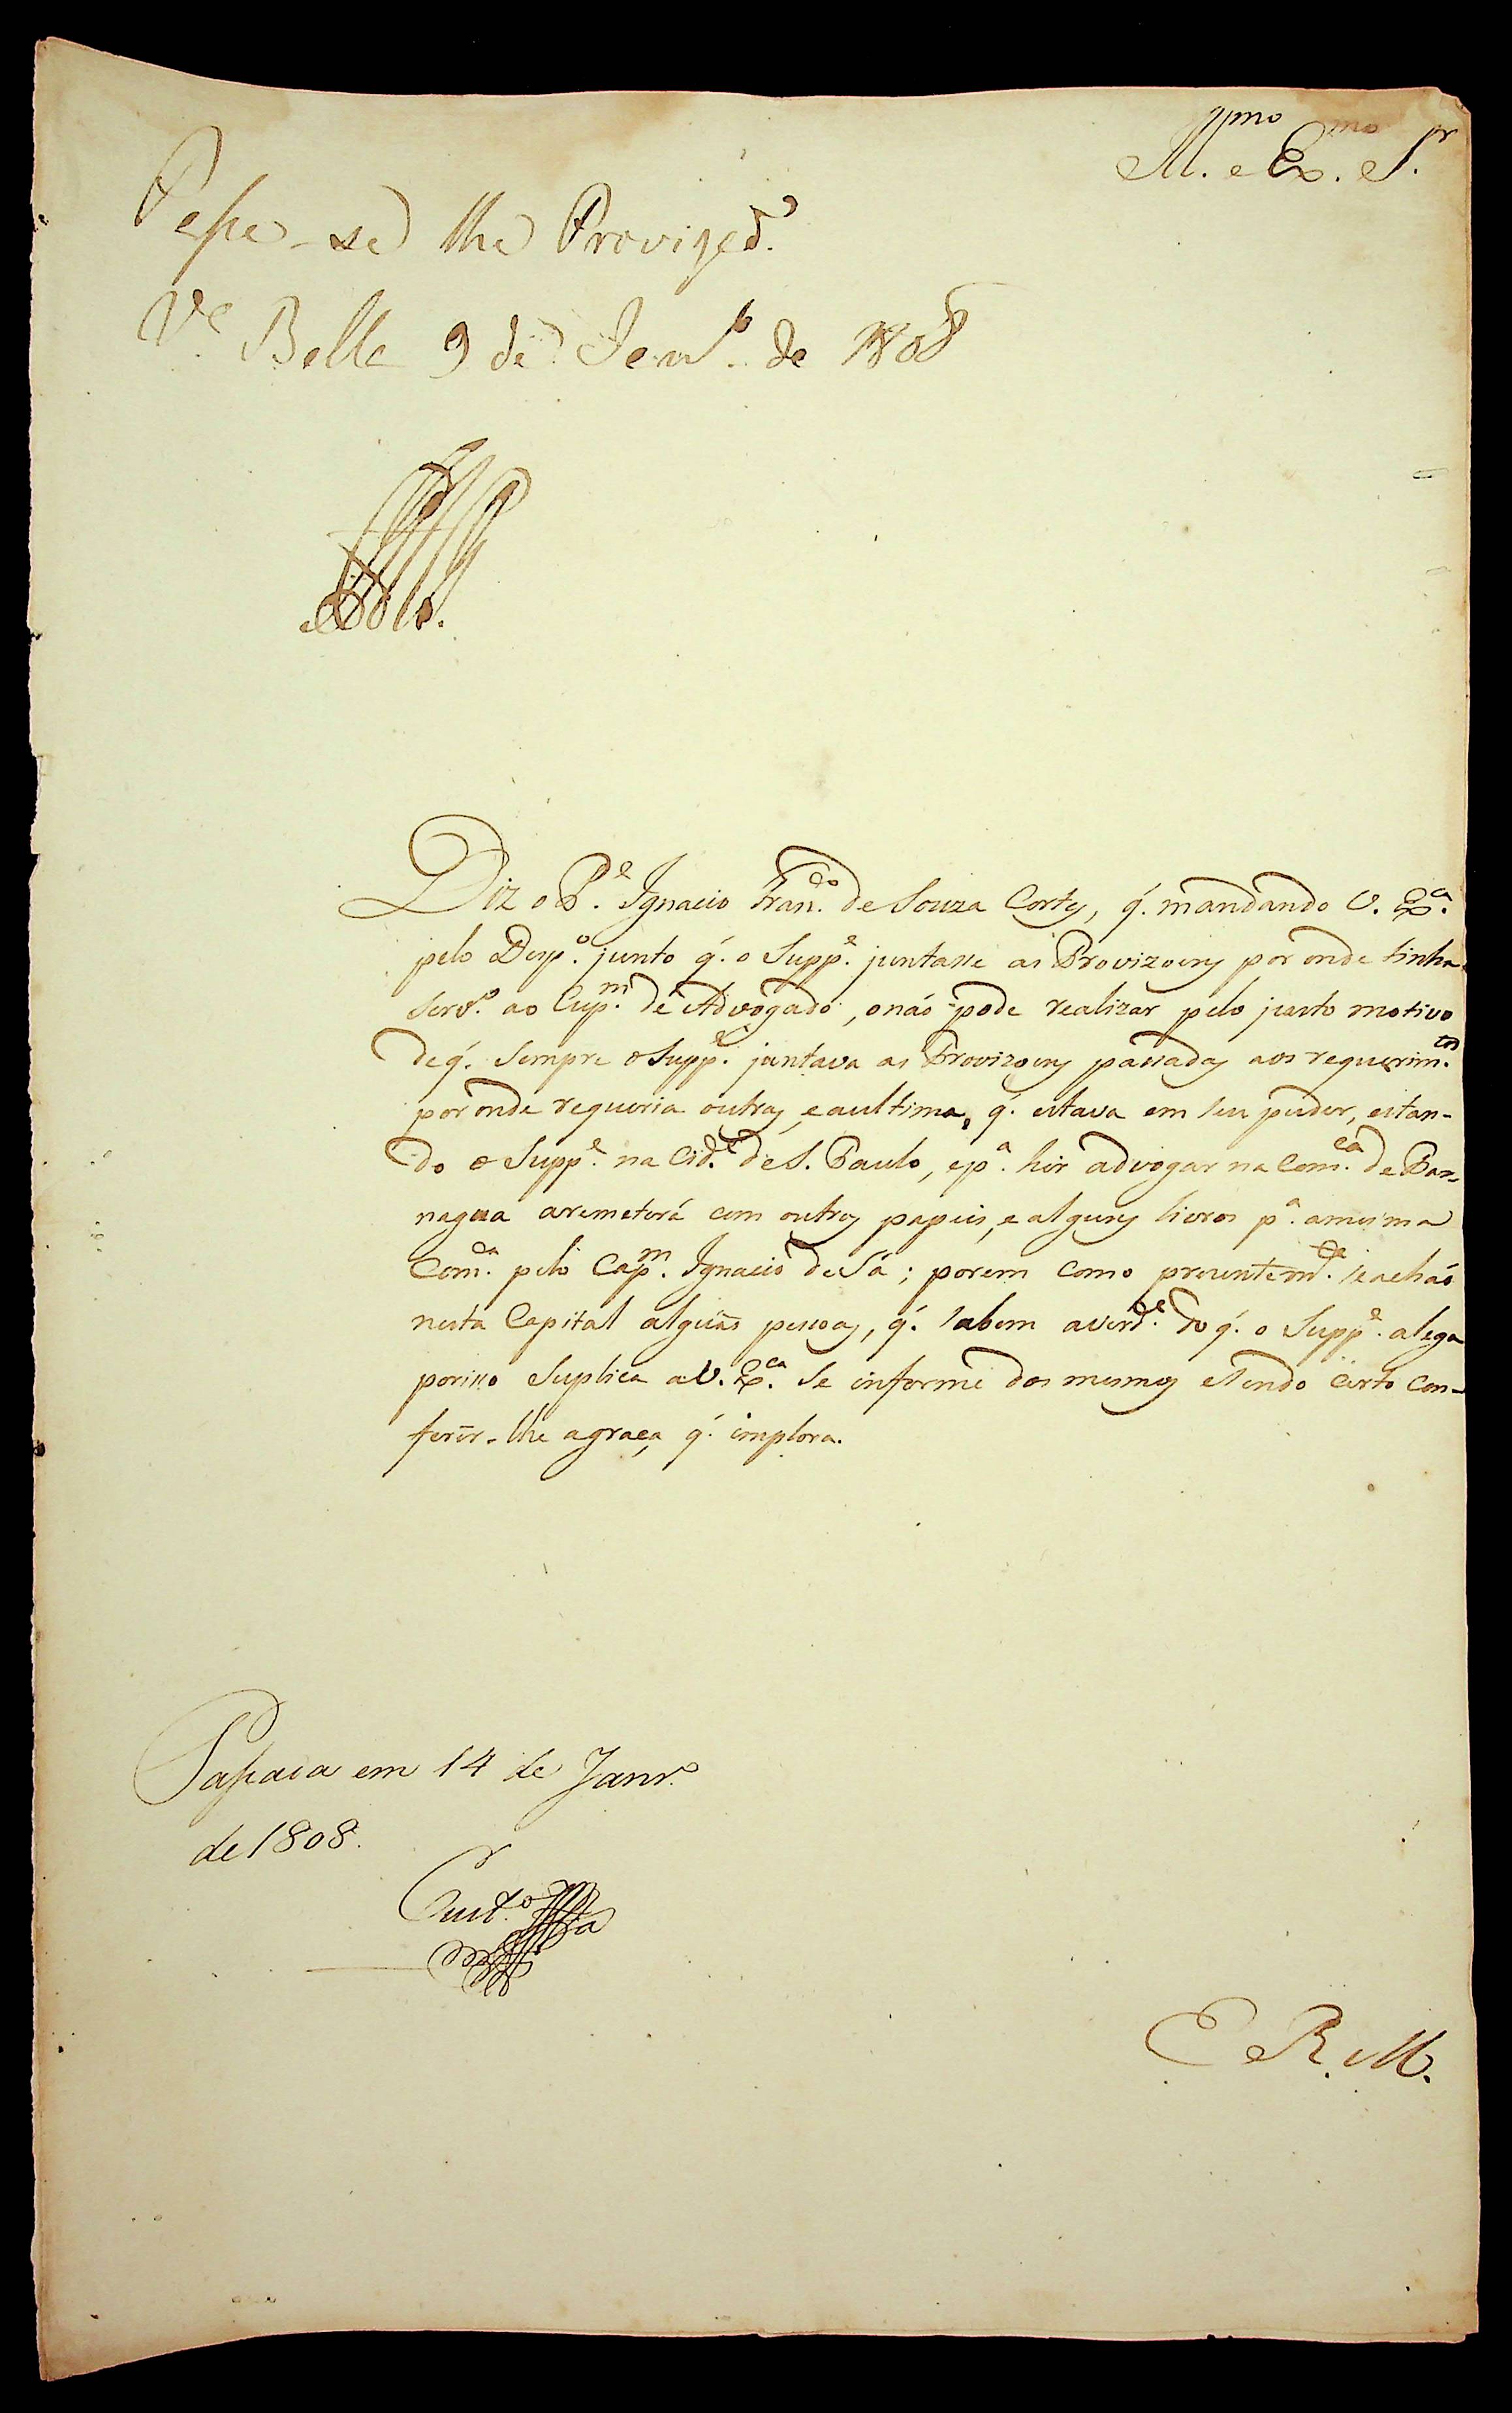 Ill.mo e Ex.mo S.r
Passe-se lhe Provized.
V.a Bella 9 de Janr.o de 1808
Diz o P.e Ignacio Fran.co de Souza Cortes, q. mandando V. Ex.a
pelo Desp.o junto q. o Supp.e juntasse as Provizoens por onde tinha
serv.o ao Cup.m de Advogado, onáo pode realizar pelo justo motivo
deq. sempre o Supp.e juntava as Provizoens passadas aos requerim.tos
por onde requeria outras, e aultima, q. estava em seu puder, estan-
do o Supp.e na Cid.e de S. Paulo, ep.a hir advogar na Com.ca de Par-
nagua aremeterá com outros papeis, e alguns livros p.a amesma
Com.ca pelo Cap.m Ignacio de Sá; porem como prezentem.te seacháo
nesta Capital alguãs pessoas, q. sabem averd.e do q. o Supp.e alega
porisso Suplica a V. Ex.ca se informe dos mesmos esendo certo con-
ferir-lhe agraça q. implora.
Passada em 14 de Janr.o
de 1808.
E R. M.